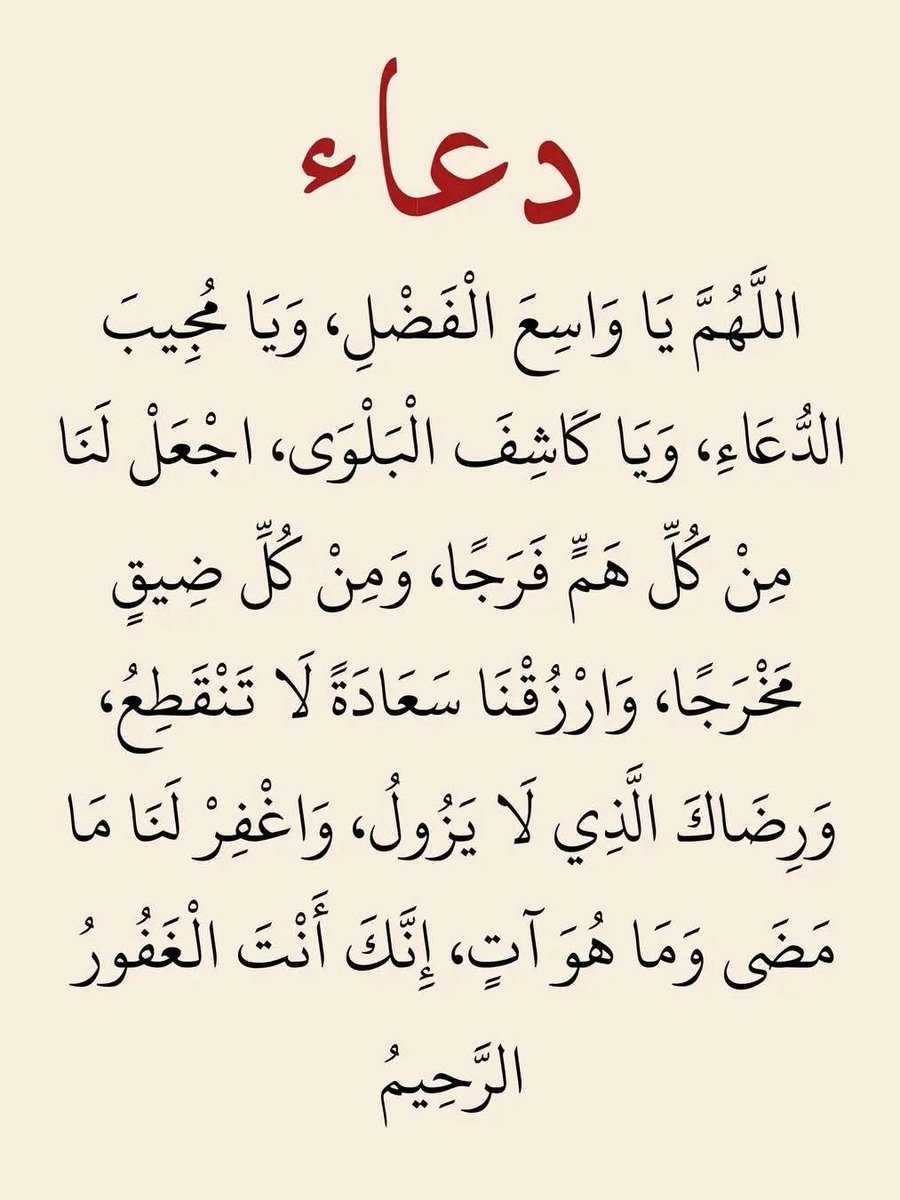 دعاء
اللَّهُمَّ يَا وَاسِعَ الْفَضْلِ، وَيَا مُجِيبَ
الدُّعَاءِ، وَيَا كَاشِفَ الْبَلْوَى، اجْعَلْ لَنَا
مِنْ كُلِّ هَمٍّ فَرَجًا، وَمِنْ كُلِّ ضِيقٍ
مَخْرَجًا، وَارْزُقْنَا سَعَادَةً لَا تَنْقَطِعُ،
وَرِضَاكَ الَّذِي لَا يَزُولُ، وَاغْفِرْ لَنَا مَا
مَضَى وَمَا هُوَ آتٍ، إِنَّكَ أَنْتَ الْغَفُورُ
الرَّحِيمُ